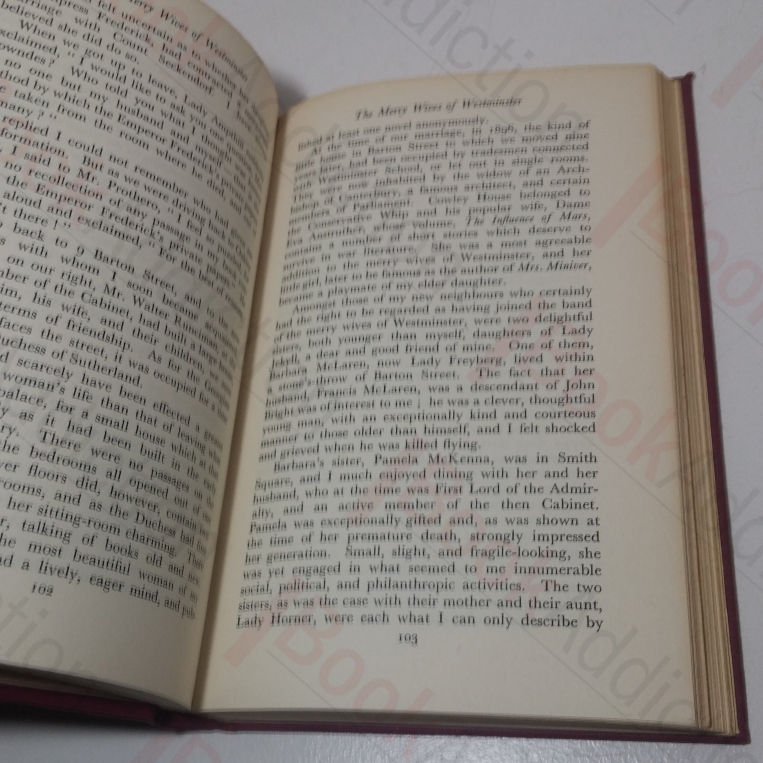 Merry Wives of Westminster
felt uncertain as to whether
marriage with Count Seckendorf
believed she did do so.
When we got up to leave, Lady
exclaimed, " I would like to ask you
owndes? Who told you what I
no one but my husband and myself
thod by which the Emperor Frederick's private
e taken from the room where he died, and
many? "
replied I could not remember who had
formation. But as we were driving back
I said to Mr. Prothero, " I feel
no recollection of any passage in my book
the Emperor Frederick's private papers."
aloud and exclaimed, " For the
't there ! "
back to 9 Barton Street, and to the
s with whom I soon became
on our right, Mr. Walter Runciman,
mber of the Cabinet, had built a large
im, his wife, and their children, we
terms of friendship. As for the
faces the street, it was occupied for a
uchess of Sutherland.
d scarcely have been effected a greater
woman's life than that of leaving
palace, for a small house which at the
ly as it had been built in the
ry. There were no passages on
the bedrooms all opened out of
ver floors did, however, contain
rooms, and as the Duchess had
her sitting-room charming. There
r, talking of books old and new,
he most beautiful woman of
d a lively, eager mind, and pub-
102
The Merry Wives of Westminster
lished at least one novel anonymously.
At the time of our marriage, in 1896, the kind of
little house in Barton Street to which we moved nine
years later, had been occupied by tradesmen connected
with Westminster School, or let out in single rooms.
They were now inhabited by the widow of an Arch-
bishop of Canterbury, a famous architect, and certain
members of Parliament. Cowley House belonged to
the Conservative Whip and his popular wife, Dame
Eva Anstruther, whose volume, The Influence of Mars,
contains a number of short stories which deserve to
survive in war literature. She was a most agreeable
addition to the merry wives of Westminster, and her
little girl, later to be famous as the author of Mrs. Miniver,
became a playmate of my elder daughter.
Amongst those of my new neighbours who certainly
had the right to be regarded as having joined the band
of the merry wives of Westminster, were two delightful
sisters, both younger than myself, daughters of Lady
Jekyll, a dear and good friend of mine. One of them,
Barbara McLaren, now Lady Freyberg, lived within
a stone's throw of Barton Street. The fact that her
husband, Francis McLaren, was a descendant of John
Bright was of interest to me ; he was a clever, thoughtful
young man, with an exceptionally kind and courteous
manner to those older than himself, and I felt shocked
and grieved when he was killed flying.
Barbara's sister, Pamela McKenna, was in Smith
Square, and I much enjoyed dining with her and her
husband, who at the time was First Lord of the Admir-
alty, and an active member of the then Cabinet.
Pamela was exceptionally gifted and, as was shown at
the time of her premature death, strongly impressed
her generation. Small, slight, and fragile-looking, she
was yet engaged in what seemed to me innumerable
social, political, and philanthropic activities. The two
sisters, as was the case with their mother and their aunt,
Lady Horner, were each what I can only describe by
103
iBook Addiction